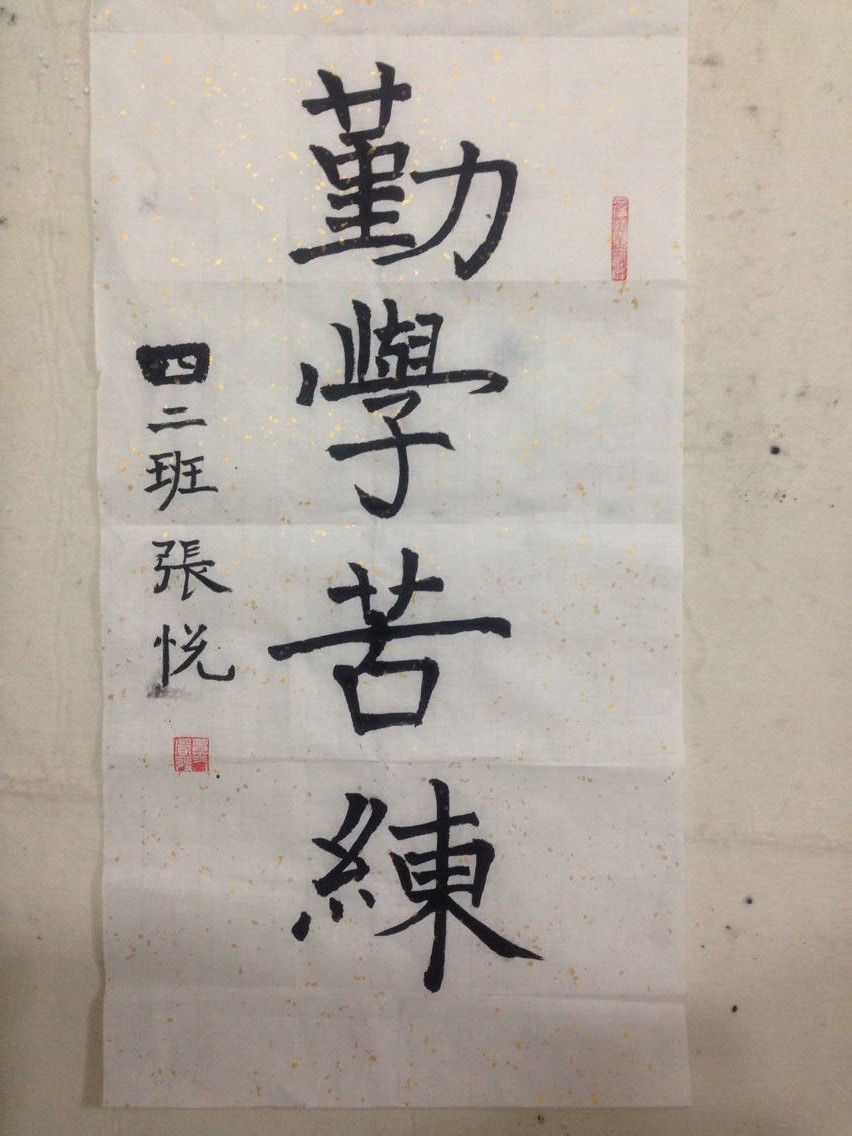 勤學苦練
四二班張悦